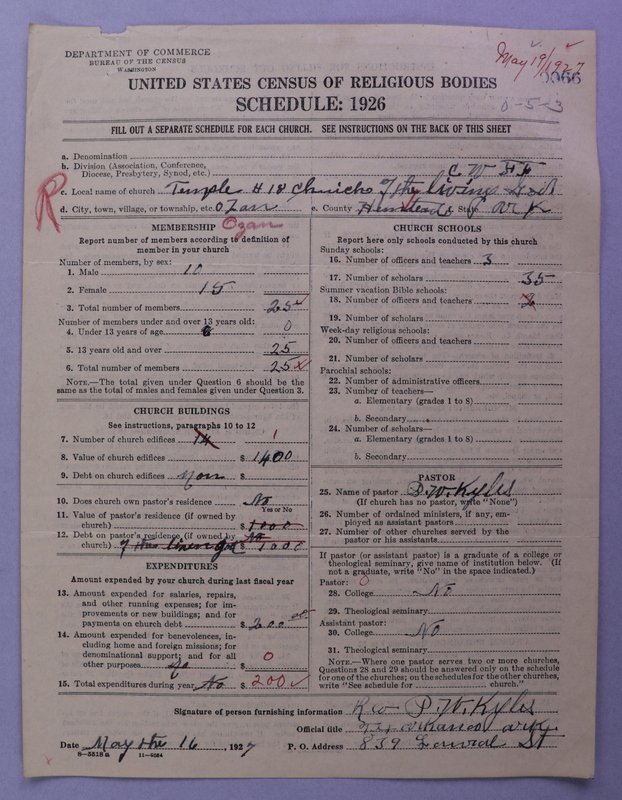 DEPARTMENT OF COMMERCE
BUREAU OF THE CENSUS
WASHINGTON
May 19/1927
UNITED STATES CENSUS OF RELIGIOUS BODIES
SCHEDULE: 1926
8-5-3
FILL OUT A SEPARATE SCHEDULE FOR EACH CHURCH. SEE INSTRUCTIONS ON THE BACK OF THIS SHEET
a. Denomination
b. Division (Association, Conference,
Diocese, Presbytery, Synod, etc.) C. W. F. F.
c. Local name of church Temple # 18 Church of the living God
d. City, town, village, or township, etc. Ozan e. County Hempstead State Ark
R
Ozan
MEMBERSHIP
Report number of members according to definition of
member in your church
Number of members, by sex:
1. Male 10
2. Female 15
3. Total number of members 25
Number of members under and over 13 years old:
4. Under 13 years of age 0
5. 13 years old and over 25
6. Total number of members 25
NOTE.—The total given under Question 6 should be the
same as the total of males and females given under Question 3.
CHURCH BUILDINGS
See instructions, paragraphs 10 to 12
7. Number of church edifices 14 1
8. Value of church edifices $ 1400
9. Debt on church edifices None $
10. Does church own pastor's residence No
Yes or No
11. Value of pastor's residence (if owned by
church) $ 1000
12. Debt on pastor's residence (if owned by
church) $ 1000
No
EXPENDITURES
Amount expended by your church during last fiscal year
13. Amount expended for salaries, repairs,
and other running expenses; for im-
provements or new buildings; and for
payments on church debt $ 200 00
14. Amount expended for benevolences, in-
cluding home and foreign missions; for
denominational support; and for all
other purposes No $ 0
15. Total expenditures during year No $ 200
CHURCH SCHOOLS
Report here only schools conducted by this church
Sunday schools:
16. Number of officers and teachers 3
17. Number of scholars 35
Summer vacation Bible schools:
18. Number of officers and teachers 2
19. Number of scholars
Week-day religious schools:
20. Number of officers and teachers
21. Number of scholars
Parochial schools:
22. Number of administrative officers
23. Number of teachers—
a. Elementary (grades 1 to 8)
b. Secondary
24. Number of scholars—
a. Elementary (grades 1 to 8)
b. Secondary
PASTOR
25. Name of pastor P. W. Kyles
(If church has no pastor, write "None")
26. Number of ordained ministers, if any, em-
ployed as assistant pastors
27. Number of other churches served by the
pastor or his assistants
If pastor (or assistant pastor) is a graduate of a college or
theological seminary, give name of institution below. (If
not a graduate, write "No" in the space indicated.)
Pastor: 0
28. College No
29. Theological seminary
Assistant pastor:
30. College No
31. Theological seminary
NOTE.—Where one pastor serves two or more churches,
Questions 28 and 29 should be answered only on the schedule
for one of the churches; on the schedules for the other churches,
write "See schedule for church."
Signature of person furnishing information Rev P. W. Kyles
Official title
Date May the 16, 1927 P. O. Address 839 St
8—5518 a 11—9054